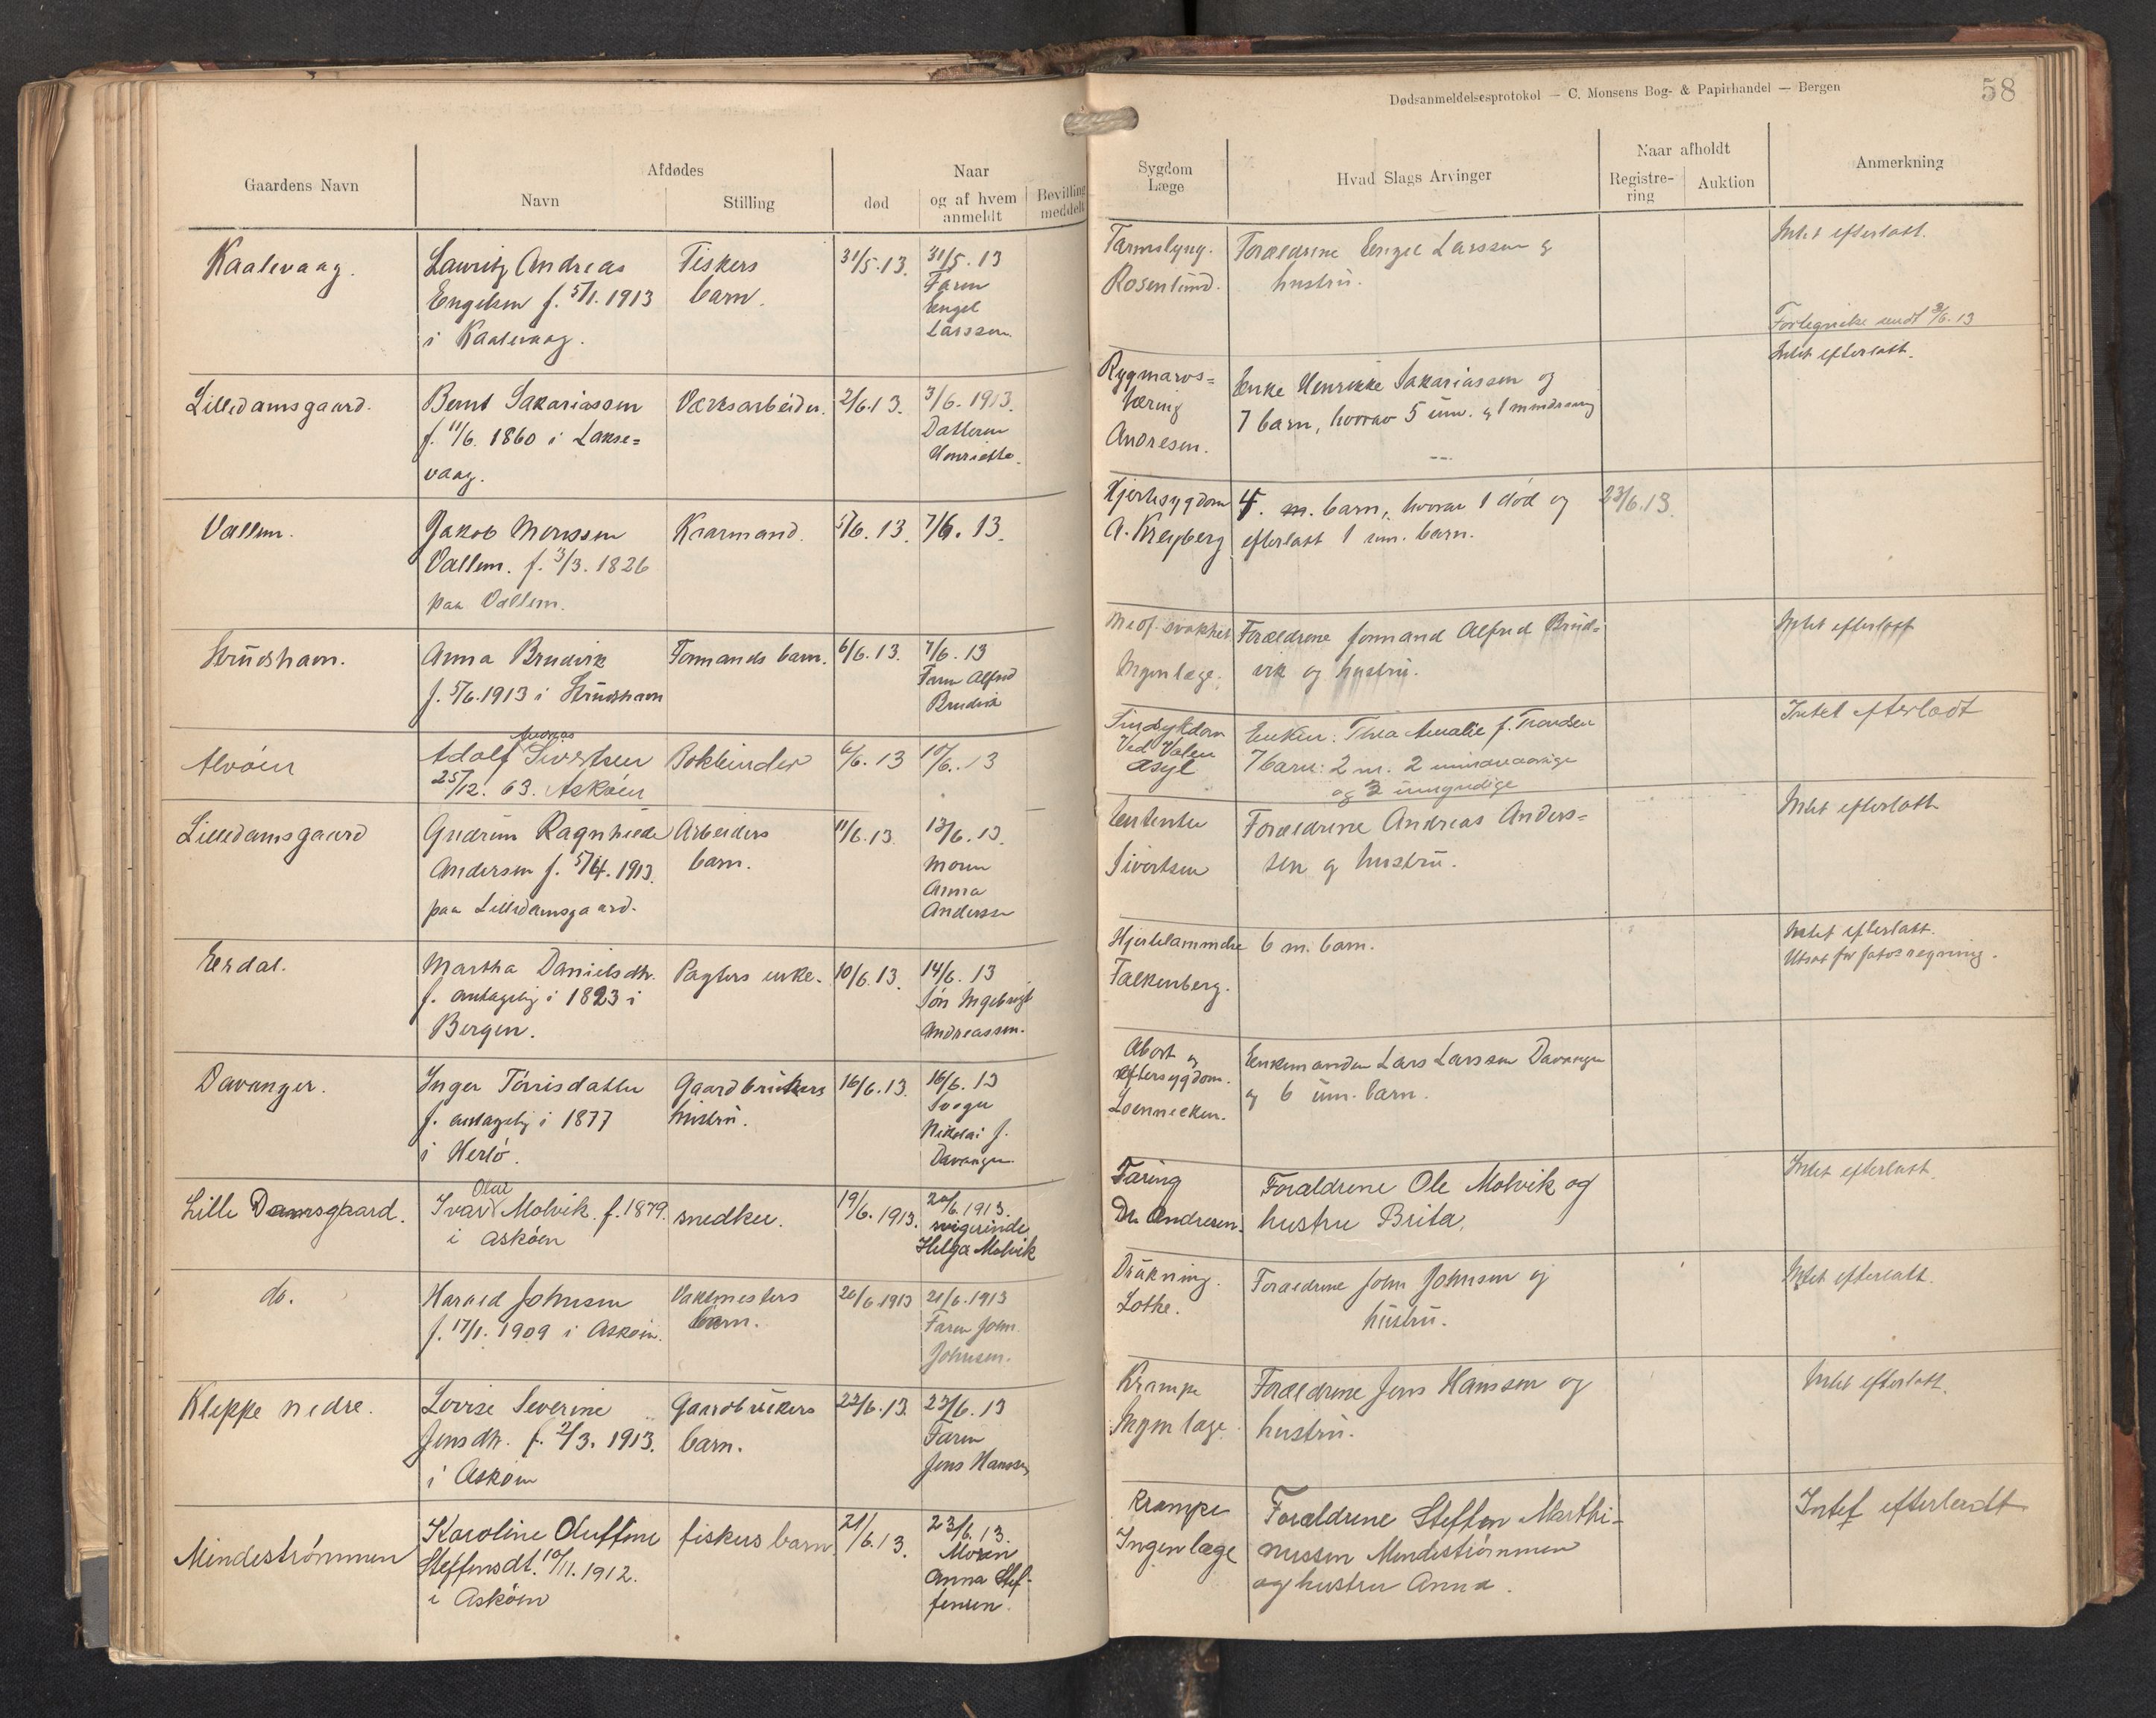 Dødsanmeldelsesprotokol — C. Monsens Bog- & Papirhandel — Bergen
58
Gaardens Navn
Afdødes
Navn
Stilling
død
Naar
og af hvem
anmeldt
Bevilling
meddelt
Sygdom
Læge
Hvad Slags Arvinger
Naar afholdt
Registre-
ring
Auktion
Anmerkning
Kaalevaag.
Lauritz Andreas
Engelsen f. 5/1. 1913
i Kaalevaag.
Fiskers
barn.
31/5.13.
31/5.13
Faren
Engel
Larssen.
Tarmslyng.
Rosenlund.
Forældrene Engel Larssen og
hustru.
Intet efterlatt.
Fortegnelse sendt 3/6.13
Lilledamsgaard.
Bernt Sakariassen
f. 11/6. 1860 i Lakse=
vaag.
Værksarbeider.
2/6.13.
3/6.1913.
Datteren
Henriette.
Rygmarvs=
tæring
Andresen.
Enke Henrikke Sakariassen og
7 barn, hvorav 5 um. og 1 mindreaarig
Intet efterlatt.
Vallem.
Jakob Monssen
Vallem. f. 3/3. 1826
paa Vallem.
Kaarmand.
5/6.13.
7/6.13.
Hjertesygdom
A. Kreyberg
4. m. barn, hvorav 1 død og
efterlatt 1 um. barn.
23/6.13.
Strudshavn.
Anna Brudvik
f. 5/6.1913 i Strudshavn
Formands barn.
6/6.13.
7/6.13
Faren Alfred
Brudvik
Medf. svakhet
Ingen læge.
Forældrene formand Alfred Brud=
vik og hustru.
Intet efterlatt
Alvøen
Andreas
Adolf Sivertsen
25/12. 63. Askøen
Bokbinder
6/6.13
10/6.13
Sindsykdom
Ved Valen
Asyl
Enken: Thea Amalie f. Trondsen
7 barn: 2 m. 2 mindreaarige
og 3 umyndige
Intet efterladt
Lilledamsgaard
Gudrun Ragnhild
Andersen f. 5/4. 1913.
paa Lilledamsgaard.
Arbeiders
barn.
11/6.13.
13/6.13.
Moren
Anna
Andersen
Enterite
Sivertsen
Forældrene Andreas Anders=
sen og hustru.
Intet efterlatt
Erdal.
Martha Danielsdtr.
f. antagelig i 1823 i
Bergen.
Pagters enke.
10/6.13.
14/6.13
Søn Ingebrigt
Andreassen.
Hjertelammelse
Falkenberg.
6 m. barn.
Intet efterlatt.
Utsat for fatt.regning.
Davanger.
Inger Tørrisdatter
f. antagelig i 1877
i Herlø.
Gaardbrukers
hustru.
16/6.13.
16/6.13
Svoger
Nikolai J.
Davanger.
Abort og
eftersygdom.
Loennecken.
Enkemanden Lars Larssen Davanger
og 6 um. barn.
Lille Damsgaard.
Olai
Ivar Molvik. f. 1879.
i Askøen
snedker.
19/6.1913.
20/6.1913.
svigerinde
Helga Molvik
Tæring
Dr. Andresen.
Forældrene Ole Molvik og
hustru Brita.
Intet efterlatt.
do.
Harald Johnsen
f. 17/1. 1909 i Askøen.
Vaktmesters
barn.
20/6.1913
21/6.1913
Faren John
Johnsen.
Drukning.
Lothe.
Forældrene John Johnsen og
hustru.
Intet efterlatt.
Kleppe nedre.
Lovise Severine
Jensdtr. f. 2/3. 1913.
i Askøen
Gaardbrukers
barn.
22/6.13.
23/6.13
Faren
Jens Hanssen
Krampe
Ingen læge.
Forældrene Jens Hanssen og
hustru.
Intet efterlatt.
Mindestrømmen
Karoline Oluffine
Steffensdt. 10/11.1912.
i Askøen
fiskers barn
21/6.13.
23/6.13.
Moren
Anna Stef-
fensen.
Krampe
Ingen læge
Forældrene Steffen Marthi-
nussen Mindestrømmen
og hustru Anna.
Intet efterladt